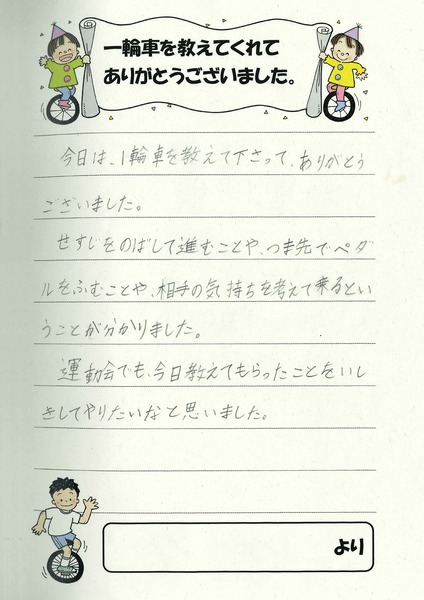 一輪車を教えてくれて
ありがとうございました。
今日は、1輪車を教えて下さって、ありがとう
ございました。
せすじをのばして進むことや、つま先でペダ
ルをふむことや、相手の気持ちを考えて乗るとい
うことが分かりました。
運動会でも、今日教えてもらったことをいし
きしてやりたいなと思いました。
より